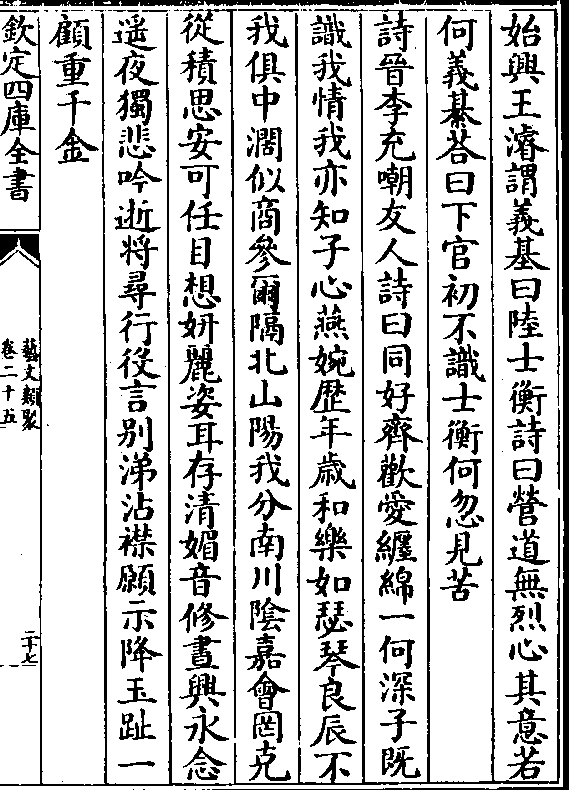 始興王濬謂義基曰陸士衡詩曰營道無烈心其意若
何義綦荅曰下官初不識士衡何忽見苦
詩晉李充嘲友人詩曰同好齊歡愛纏綿一何深子既
識我情我亦知子心燕婉歴年歳和樂如瑟琴良辰不
我俱中濶似商參爾隔北山陽我分南川陰嘉會罔克
從積思安可任目想妍麗姿耳存清媚音修晝興永念
遥夜獨悲吟逝将尋行役言别涕沾襟願示降玉趾一
顧重千金
欽定四庫全書
藝文類聚
卷二十五
二十七